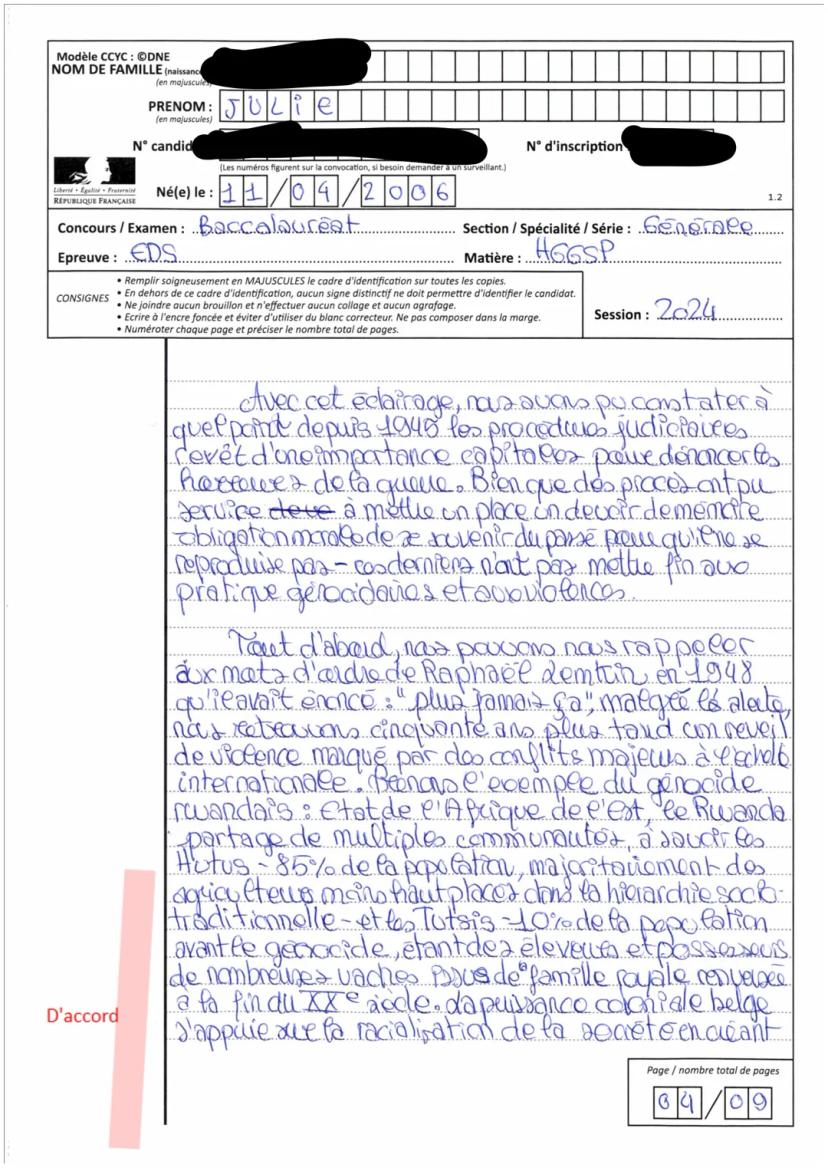 Modèle CCYC : ©DNE
NOM DE FAMILLE (naissance
(en majuscules
PRENOM : JULiE
(en majuscules)
N° candid
N° d'inscription
(Les numéros figurent sur la convocation, si besoin demander à un surveillant.)
Liberté • Égalité • Fraternité
RÉPUBLIQUE FRANÇAISE
Né(e) le : 11/04/2006
1.2
Concours / Examen : Baccalauréat
Section / Spécialité / Série : Générale
Epreuve : EDS
Matière : HGGSP
CONSIGNES
• Remplir soigneusement en MAJUSCULES le cadre d'identification sur toutes les copies.
• En dehors de ce cadre d'identification, aucun signe distinctif ne doit permettre d'identifier le candidat.
• Ne joindre aucun brouillon et n'effectuer aucun collage et aucun agrafage.
• Ecrire à l'encre foncée et éviter d'utiliser du blanc correcteur. Ne pas composer dans la marge.
• Numéroter chaque page et préciser le nombre total de pages.
Session : 2024
Avec cet éclairage, nous avons pu constater à
quel point depuis 1945 les procédures judiciaires
revêt d'une importance capitales pour dénoncer les
horreurs de la guerre. Bien que des procès ont pu
service à mettre un place un devoir de mémoire
obligation morale de se souvenir du passé pour qu'il ne se
reproduise pas - ces derniers n'ont pas mettre fin aux
pratique génocidaires et aux violences.
Tout d'abord, nous pouvons nous rappeler
aux mots d'ordre de Raphaël Lemkin en 1948
qu'il avait énoncé : "plus jamais ça", malgré les alerte,
nous retrouvons cinquante ans plus tard un reveil
de violence marqué par des conflits majeurs à l'échelle
internationale. Prenons l'exemple du génocide
rwandais : Etat de l'Afrique de l'Est, le Rwanda
partage de multiples communautés, à savoir les
Hutus - 85% de la population, majoritairement des
agriculteurs moins haut placés dans la hiérarchie socio-
traditionnelle - et les Tutsis - 10% de la population
avant le génocide, étant des éleveurs et possesseurs
de nombreuses vaches issus de la famille royale renversée
à la fin du XXe siècle. La puissance coloniale belge
s'appuie sur la racialisation de la société en créant
D'accord
Page / nombre total de pages
04/09